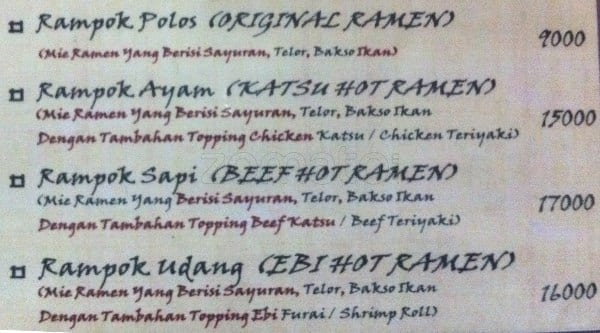 Rampok Polos (ORIGINAL RAMEN) 9000
(Mie Ramen Yang Berisi Sayuran, Telor, Bakso Ikan)
Rampok Ayam (KATSU HOT RAMEN) 15000
(Mie Ramen Yang Berisi Sayuran, Telor, Bakso Ikan
Dengan Tambahan Topping Chicken Katsu / Chicken Teriyaki)
Rampok Sapi (BEEF HOT RAMEN) 17000
(Mie Ramen Yang Berisi Sayuran, Telor, Bakso Ikan
Dengan Tambahan Topping Beef Katsu / Beef Teriyaki)
Rampok Udang (EBI HOT RAMEN) 16000
(Mie Ramen Yang Berisi Sayuran, Telor, Bakso Ikan
Dengan Tambahan Topping Ebi Furai / Shrimp Roll)